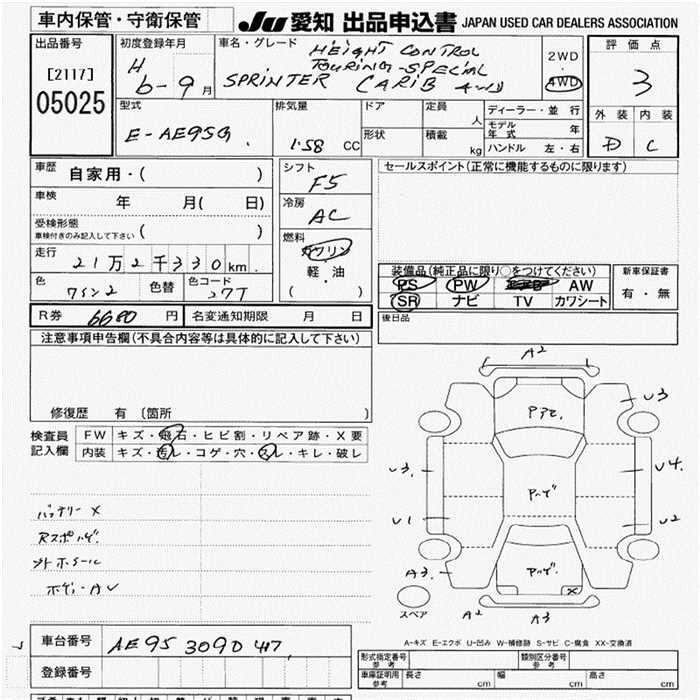 車内保管・守衛保管
JU 愛知 出品申込書 JAPAN USED CAR DEALERS ASSOCIATION
出品番号
[2117]
05025
初度登録年月
H
6-9月
車名・グレード
HEIGHT CONTROL
TOURING-SPECIAL
SPRINTER CARIB 4WD
2WD
・
4WD
評価点
3
外装 内装
D C
型式
E-AE95G
排気量
1.58 CC
ドア
形状
定員
人
積載
kg
ディーラー・並行
モデル年式 年
ハンドル 左・右
車歴 自家用・( )
車検 年 月( 日)
受検形態
車検付きのみ記入して下さい ( )
走行
21万2千330km
色
ワイン2
色替
色コード
3T7
シフト
F5
冷房
AC
燃料
ガソリン
・
軽油
( )
セールスポイント(正常に機能するものに限ります)
装備品(純正品に限り○をつけてください)
PS PW AW
SR ナビ TV カワシート
新車保証書
有・無
R券 6680 円
名変通知期限 月 日
後日品
注意事項申告欄(不具合内容等は具体的に記入して下さい)
修復歴 有 〔箇所 〕
検査員
記入欄
FW キズ・飛石・ヒビ割・リペア跡・X要
内装 キズ・汚レ・コゲ・穴・スレ・キレ・破レ
バッテリーX
Rスポハゲ
シートホール
ボディーAU
A2
U3
Pアセ
U3
U4
Pハゲ
U1
U2
A3
Pハゲ
X
スペア
A2
A3
A-キズ E-エクボ U-凹み W-補修跡 S-サビ C-腐食 XX-交換済
車台番号 AE95 3090417
登録番号
形式指定番号
参考
類別区分番号
参考
車庫証明用
参考
長さ cm
幅 cm
高さ cm